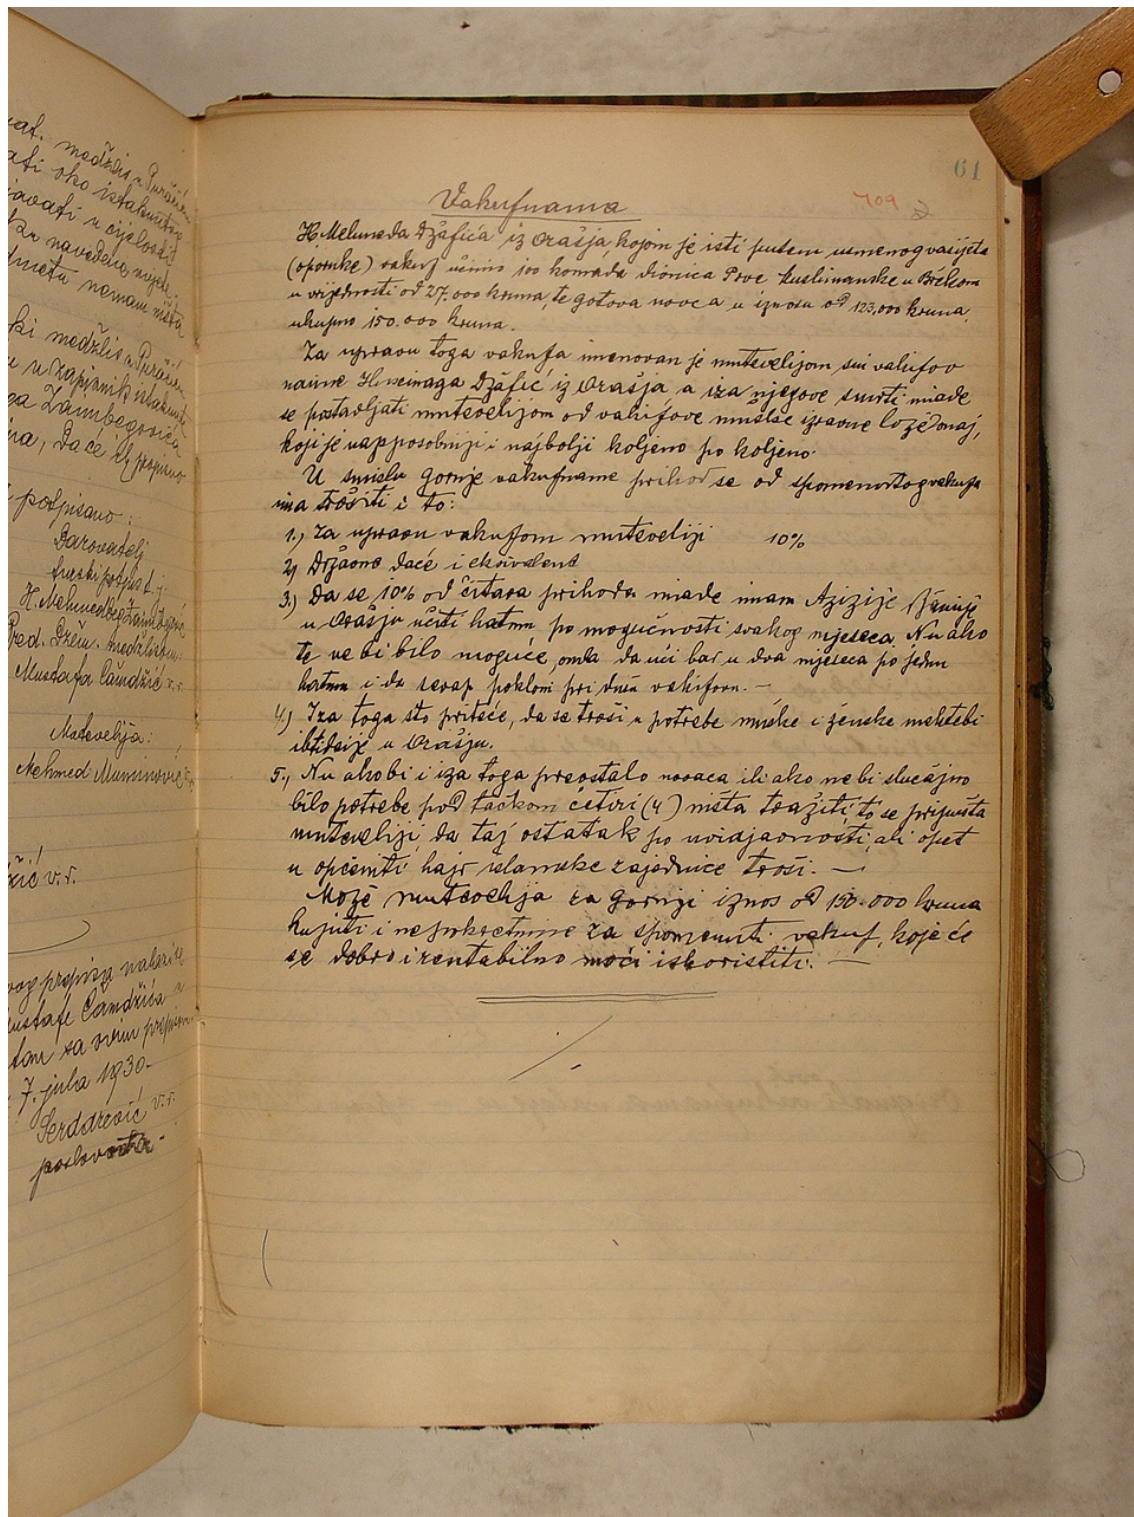 vat. medžlis u Puračiću
ati oko istaknutog
javati u cijelosti
navedene
dmeta nemam ništa
ki medžlis u Puračiću
u zapisnik istaknuta
ga Zaimbegovića
ina, da će
potpisano:
Darovatelj
turski potpis t.j.
H. Mehmedbeg Zaimbegović
Pred. Džem. medžlisa:
Mustafa Čamdžić v.r.
Mutevelija:
Mehmed Muminović v.r.
žić v.r.
ovog prepisa nalazi se
Mustafe Čamdžića
sa ovim prepisom
7. jula 1930.
Serdarević v.r.
poslovođa.
61
709
Vakufnama
H. Mehmeda Džafića iz Orašja, kojom je isti putem usmenog vasijeta
(oporuke) vakuf učinio 100 komada dionica Prve Muslimanske u Brčkom
u vrijednosti od 27.000 kruna, te gotova novca u iznosu od 123,000 kruna,
ukupno 150.000 kruna.
Za upravu toga vakufa imenovan je mutevelijom sin vakifov
naime Huseinaga Džafić iz Orašja, a iza njegove smrti imade
se postavljati mutevelijom od vakifove muške izravne loze onaj,
koji je najsposobniji i najbolji koljeno po koljeno.
U smislu gornje vakufname prihod se od spomenutog vakufa
ima trošiti i to:
1.) Za upravu vakufom muteveliji 10%
2) Državne daće i ekvivalent
3.) Da se 10% od čistava prihoda imade imam Azizije džamije
u Orašju učiti hatmu, po mogućnosti svakog mjeseca. Nu ako
te ne bi bilo moguće, onda da uči bar u dva mjeseca po jednu
hatmu i da sevap pokloni pri duši vakifovu. —
4.) Iza toga što priteče, da se troši u potrebe muške i ženske mektebi
ibtidaije u Orašju.
5.) Nu ako bi i iza toga preostalo novaca ili ako ne bi slučajno
bilo potrebe pod tačkom četiri (4) ništa tražiti, to se pripušta
muteveliji, da taj ostatak po uviđavnosti, ali opet
u općeniti hajr islamske zajednice troši. —
Može mutevelija za gornji iznos od 150.000 kruna
kupiti i nepokretnine za spomenuti vakuf, koje će
se dobro i rentabilno moći iskoristiti. —